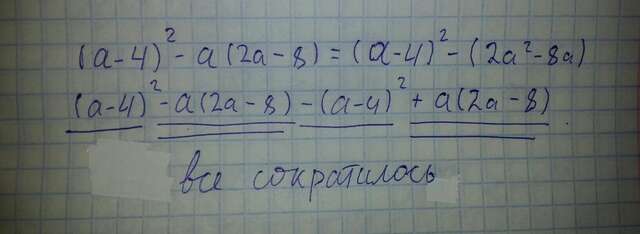 (a-4)² - a(2a-8) = (a-4)² - (2a²-8a)
(a-4)² - a(2a-8) - (a-4)² + a(2a-8)
все сократилось